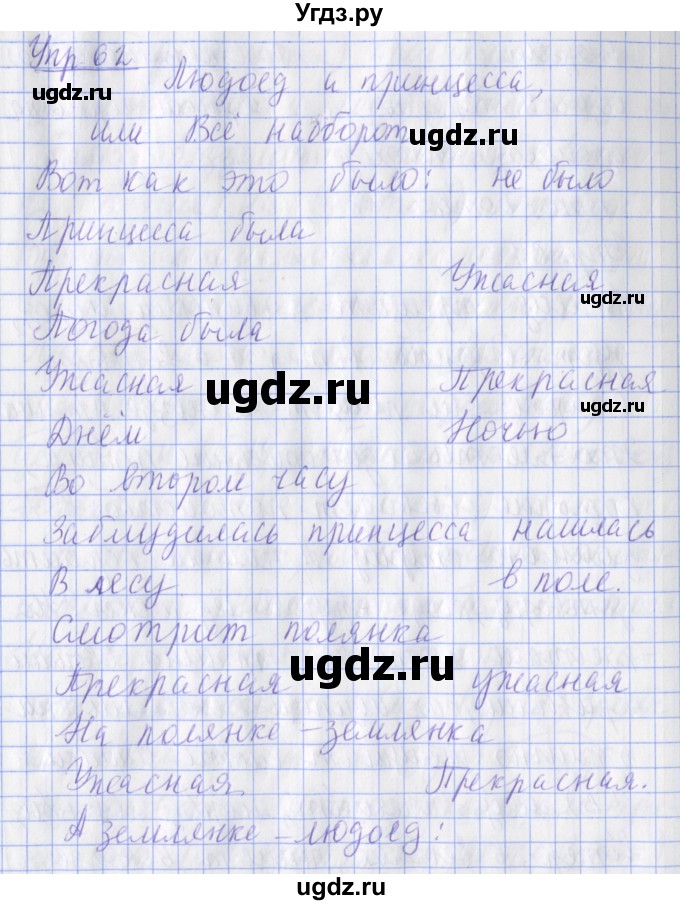 Угдз.ру
Упр 62
ugdz.ru
Людоед и принцесса,
или Всё наоборот
ugdz.ru
Вот как это было: не было
Принцесса была
Прекрасная Ужасная
ugdz.ru
Погода была
Ужасная Прекрасная
ugdz.ru ugdz.ru
Днём Ночью
Во втором часу
Заблудилась принцесса нашлась
В лесу в поле.
Смотрит полянка
ugdz.ru
Прекрасная ужасная
На полянке - землянка
Ужасная Прекрасная.
А землянке - людоед:
ugdz.ru ugdz.ru
ugdz.ru